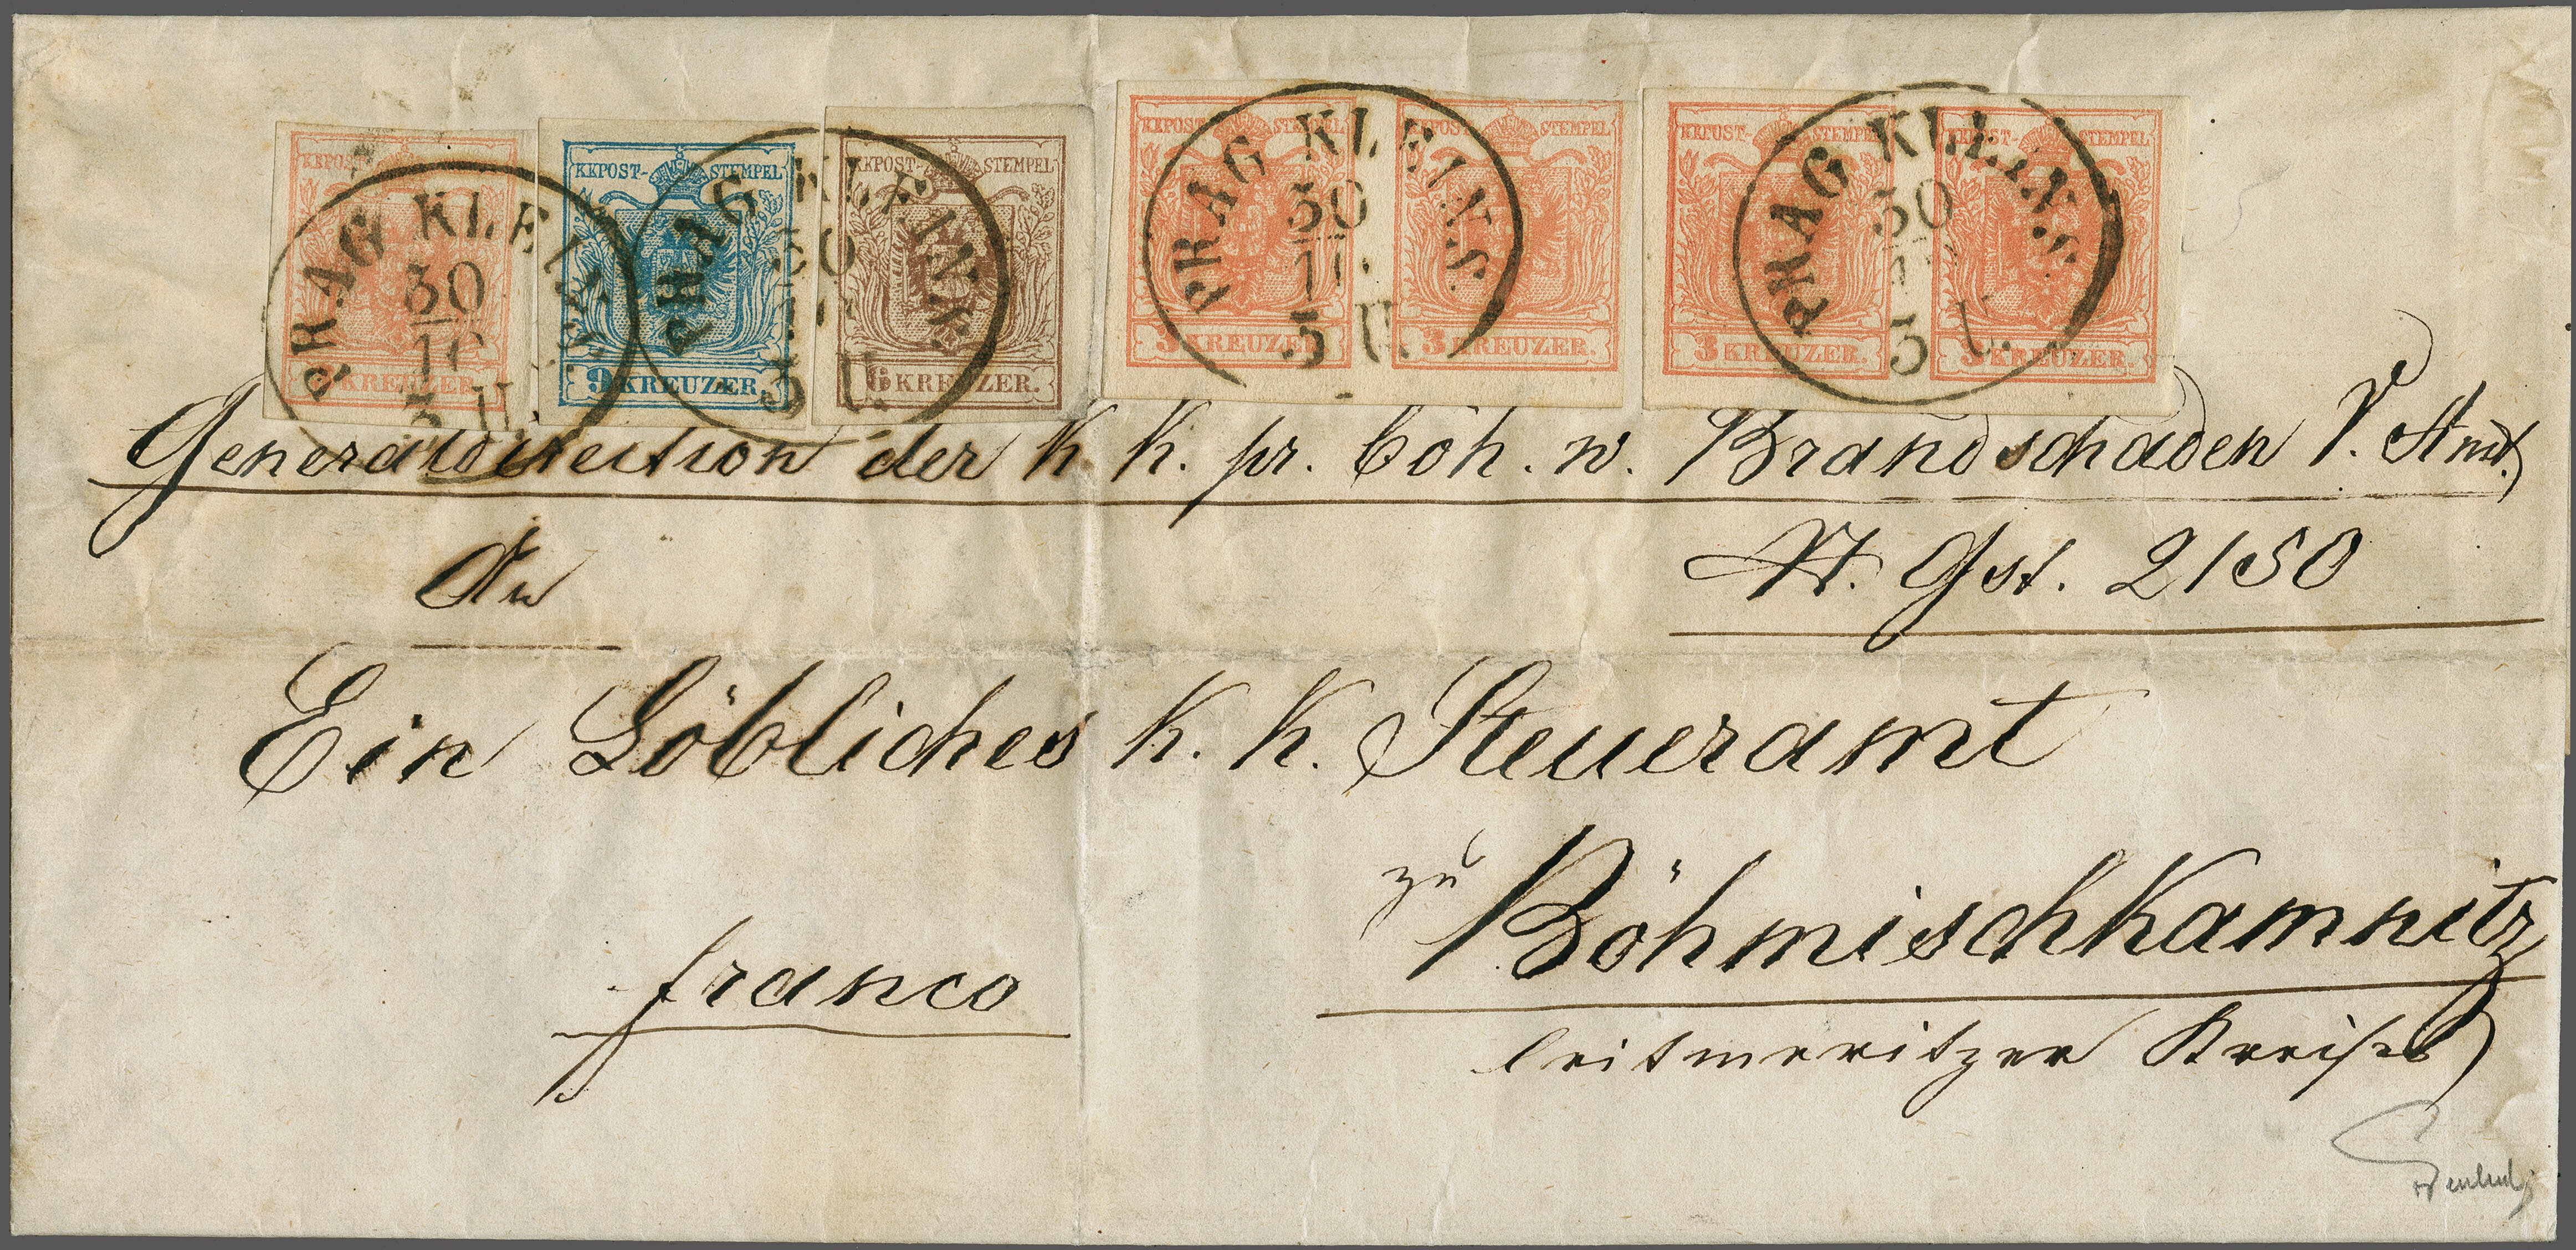 KKPOST-STEMPEL
3 KREUZER.
KKPOST-STEMPEL
9 KREUZER.
KKPOST-STEMPEL
6 KREUZER.
KKPOST-STEMPEL
3 KREUZER.
KKPOST-STEMPEL
3 KREUZER.
KKPOST-STEMPEL
3 KREUZER.
KKPOST-STEMPEL
3 KREUZER.
PRAG KLEINS.
30
10
3 U.
PRAG KLEINS.
30
10
3 U.
PRAG KLEINS.
30
10
3 U.
PRAG KLEINS.
30
10
3 U.
Generaldirection der k. k. pr. böh. w. Brandschaden V. Anst.
An
St. Gst. 2150
Ein Löbliches k. k. Steueramt
zu
BöhmischKamnitz
franco
leitmeritzer Kreises